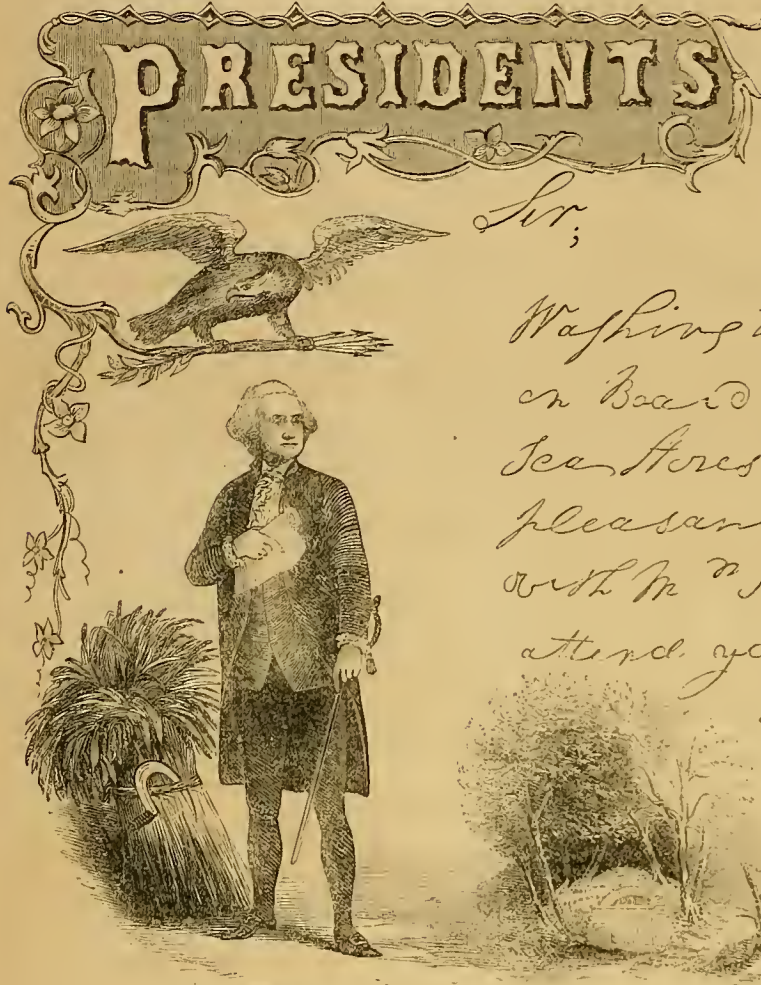 PRESIDENTS
Sir;
Washing
on Board
pleasan
with M
attend yo